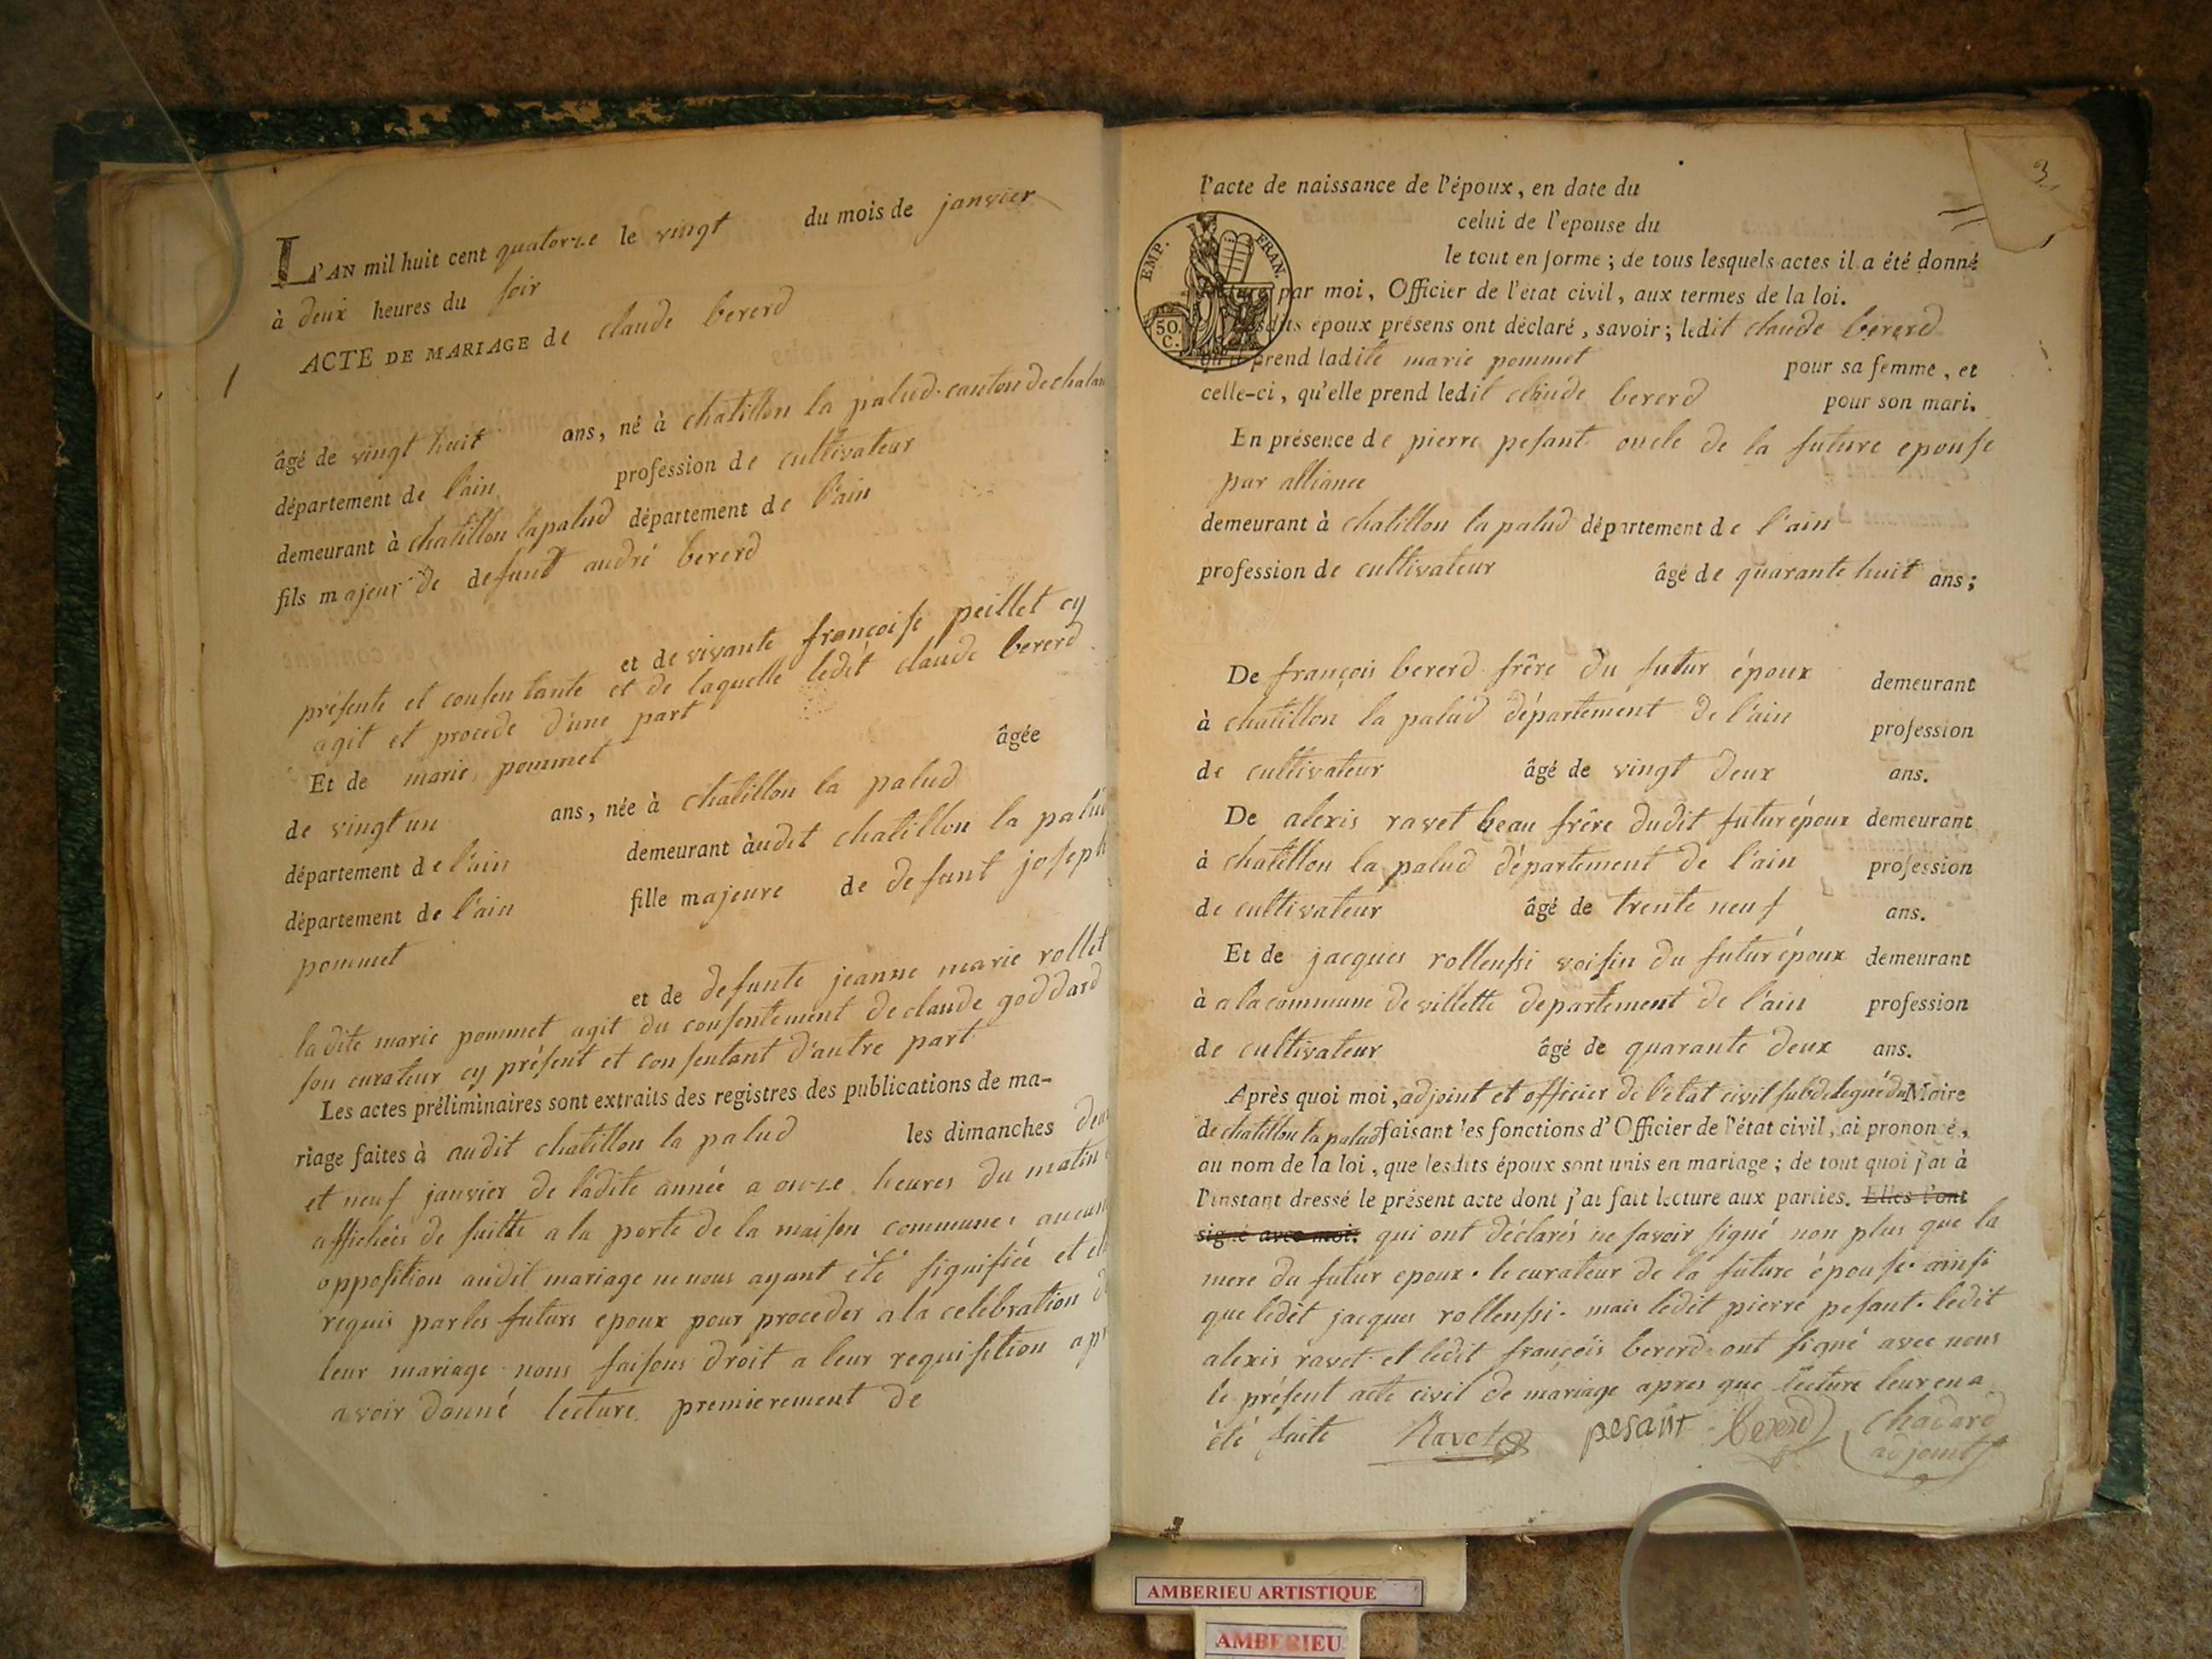 L'AN mil huit cent quatorze le vingt du mois de janvier
à deux heures du soir
ACTE DE MARIAGE de claude bererd
âgé de vingt huit ans, né à chatillon la palud. canton de chalam
département de l'ain profession de cultivateur
demeurant à chatillon la palud département de l'ain
fils majeur de defunt andré bererd
et de vivante francoise peillet cy
présente et consentante et de laquelle ledit claude bererd
agit et procede d'une part
Et de marie pommet âgée
de vingt un ans, née à chatillon la palud
département de l'ain demeurant àudit chatillon la palud
département de l'ain fille majeure de defunt joseph
pommet
et de defunte jeanne marie rollet
ladite marie pommet agit du consentement de claude goddard
son curateur cy présent et consentant d'autre part
Les actes préliminaires sont extraits des registres des publications de ma-
riage faites à audit chatillon la palud les dimanches deux
et neuf janvier de ladite année a onze heures du matin
affichées de suitte a la porte de la maison commune, aucune
opposition audit mariage ne nous ayant été signifiée et
requis par les futurs epoux pour proceder a la celebration
leur mariage nous faisons droit a leur requisition
avoir donné lecture premierement de
3
l'acte de naissance de l'époux, en date du
celui de l'epouse du
le tout en forme; de tous lesquels actes il a été donné
EMP. FRAN.
50. C.
lecture par moi, Officier de l'état civil, aux termes de la loi.
Lesdits époux présens ont déclaré, savoir; ledit claude bererd
qu'il prend ladite marie pommet pour sa femme, et
celle-ci, qu'elle prend ledit claude bererd pour son mari.
En présence de pierre pesant oncle de la future epouse
par alliance
demeurant à chatillon la palud département de l'ain
profession de cultivateur âgé de quarante huit ans;
De françois bererd frère du futur époux demeurant
à chatillon la palud département de l'ain profession
de cultivateur âgé de vingt deux ans.
De alexis ravet beau frère dudit futur époux demeurant
à chatillon la palud département de l'ain profession
de cultivateur âgé de trente neuf ans.
Et de jacques rollenssi voisin du futur époux demeurant
à a la commune de villette departement de l'ain profession
de cultivateur âgé de quarante deux ans.
Après quoi moi, adjoint et officier de l'etat civil subdelegué du Maire
de chatillon la palud faisant les fonctions d'Officier de l'état civil, ai prononcé,
au nom de la loi, que lesdits époux sont unis en mariage; de tout quoi j'ai à
l'instant dressé le présent acte dont j'ai fait lecture aux parties. Elles l'ont
signé avec moi. qui ont déclarés ne savoir signé non plus que la
mere du futur epoux. le curateur de la future épouse. ainsi
que ledit jacques rollenssi. mais ledit pierre pesant. ledit
alexis ravet et ledit françois bererd ont signé avec nous
le présent acte civil de mariage apres que lecture leur en a
été faite Ravet pesant bererd chadard
adjoint
AMBERIEU ARTISTIQUE
AMBERIEU